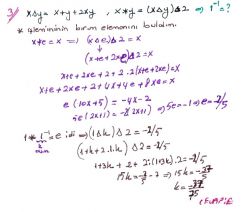 3) x△y = x+y+2xy , x*y = (x△y)△2 ⇒ 1⁻¹ = ?
* işleminin birim elemanını bulalım.
x*e = x ⇒ (x△e)△2 = x
(x+e+2xe)△2 = x
x+e+2xe+2+2.2(x+e+2xe) = x
x+e+2xe+2+4x+4e+8xe = x
e(10x+5) = -4x-2
5e(2x+1) = -2(2x+1) ⇒ 5e = -2 ⇒ e = -2/5
1 * 1⁻¹ = e idi ⇒ (1△k)△2 = -2/5
(1+k+2.1.k)△2 = -2/5
1+3k+2+2.(1+3k).2 = -2/5
15k = -2/5 - 7 ⇒ 15k = -37/5
k = -37/75